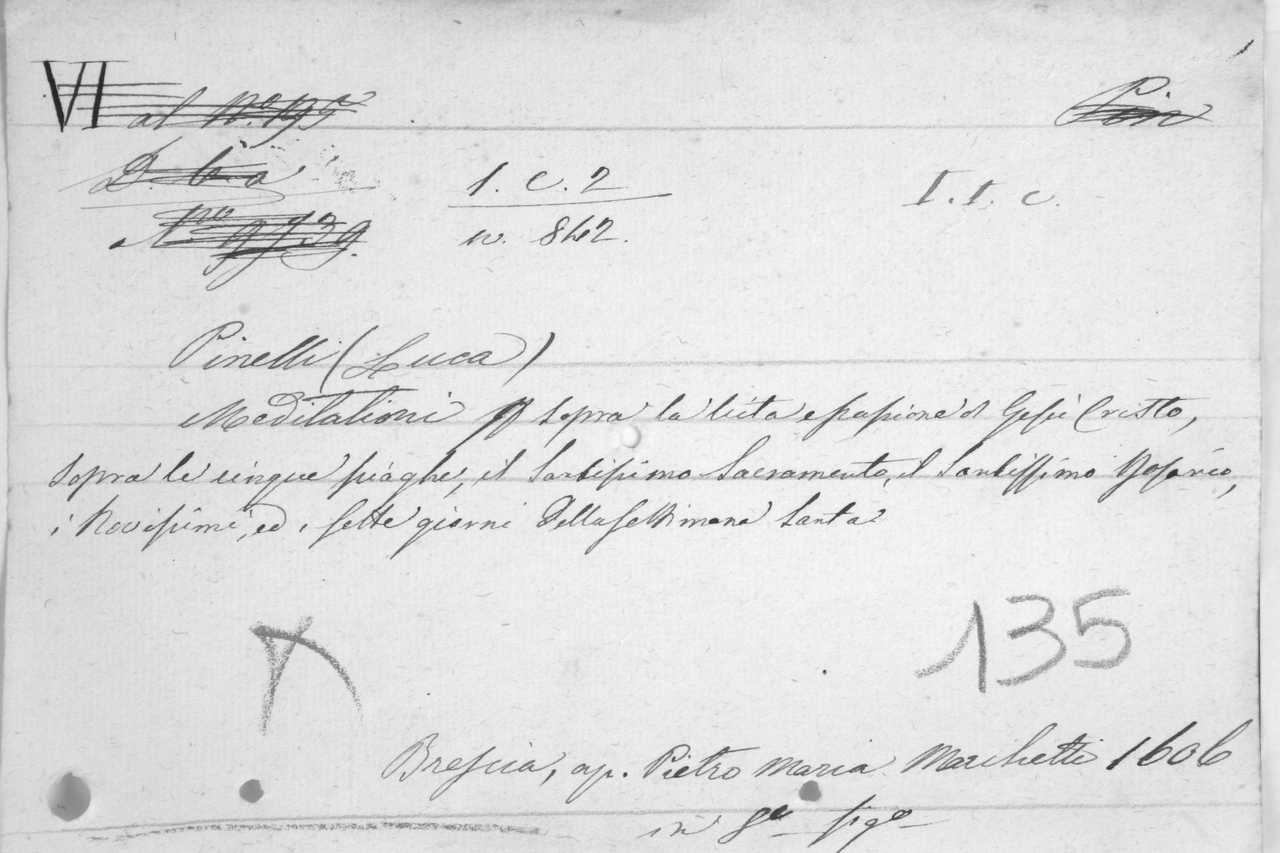 VI al Nº 195 Pin
D. b a
1. c. 2 I. I. c.
Nº 9739. n. 842.
Pinelli (Luca)
Meditationi sopra la vita e passione di Gesù Cristo,
sopra le cinque piaghe, il Santissimo Sacramento, il Santissimo Rosario,
i Novissimi, ed i sette giorni della settimana Santa
135
Brescia, ap. Pietro Maria Marchetti 1606
in 8º figº